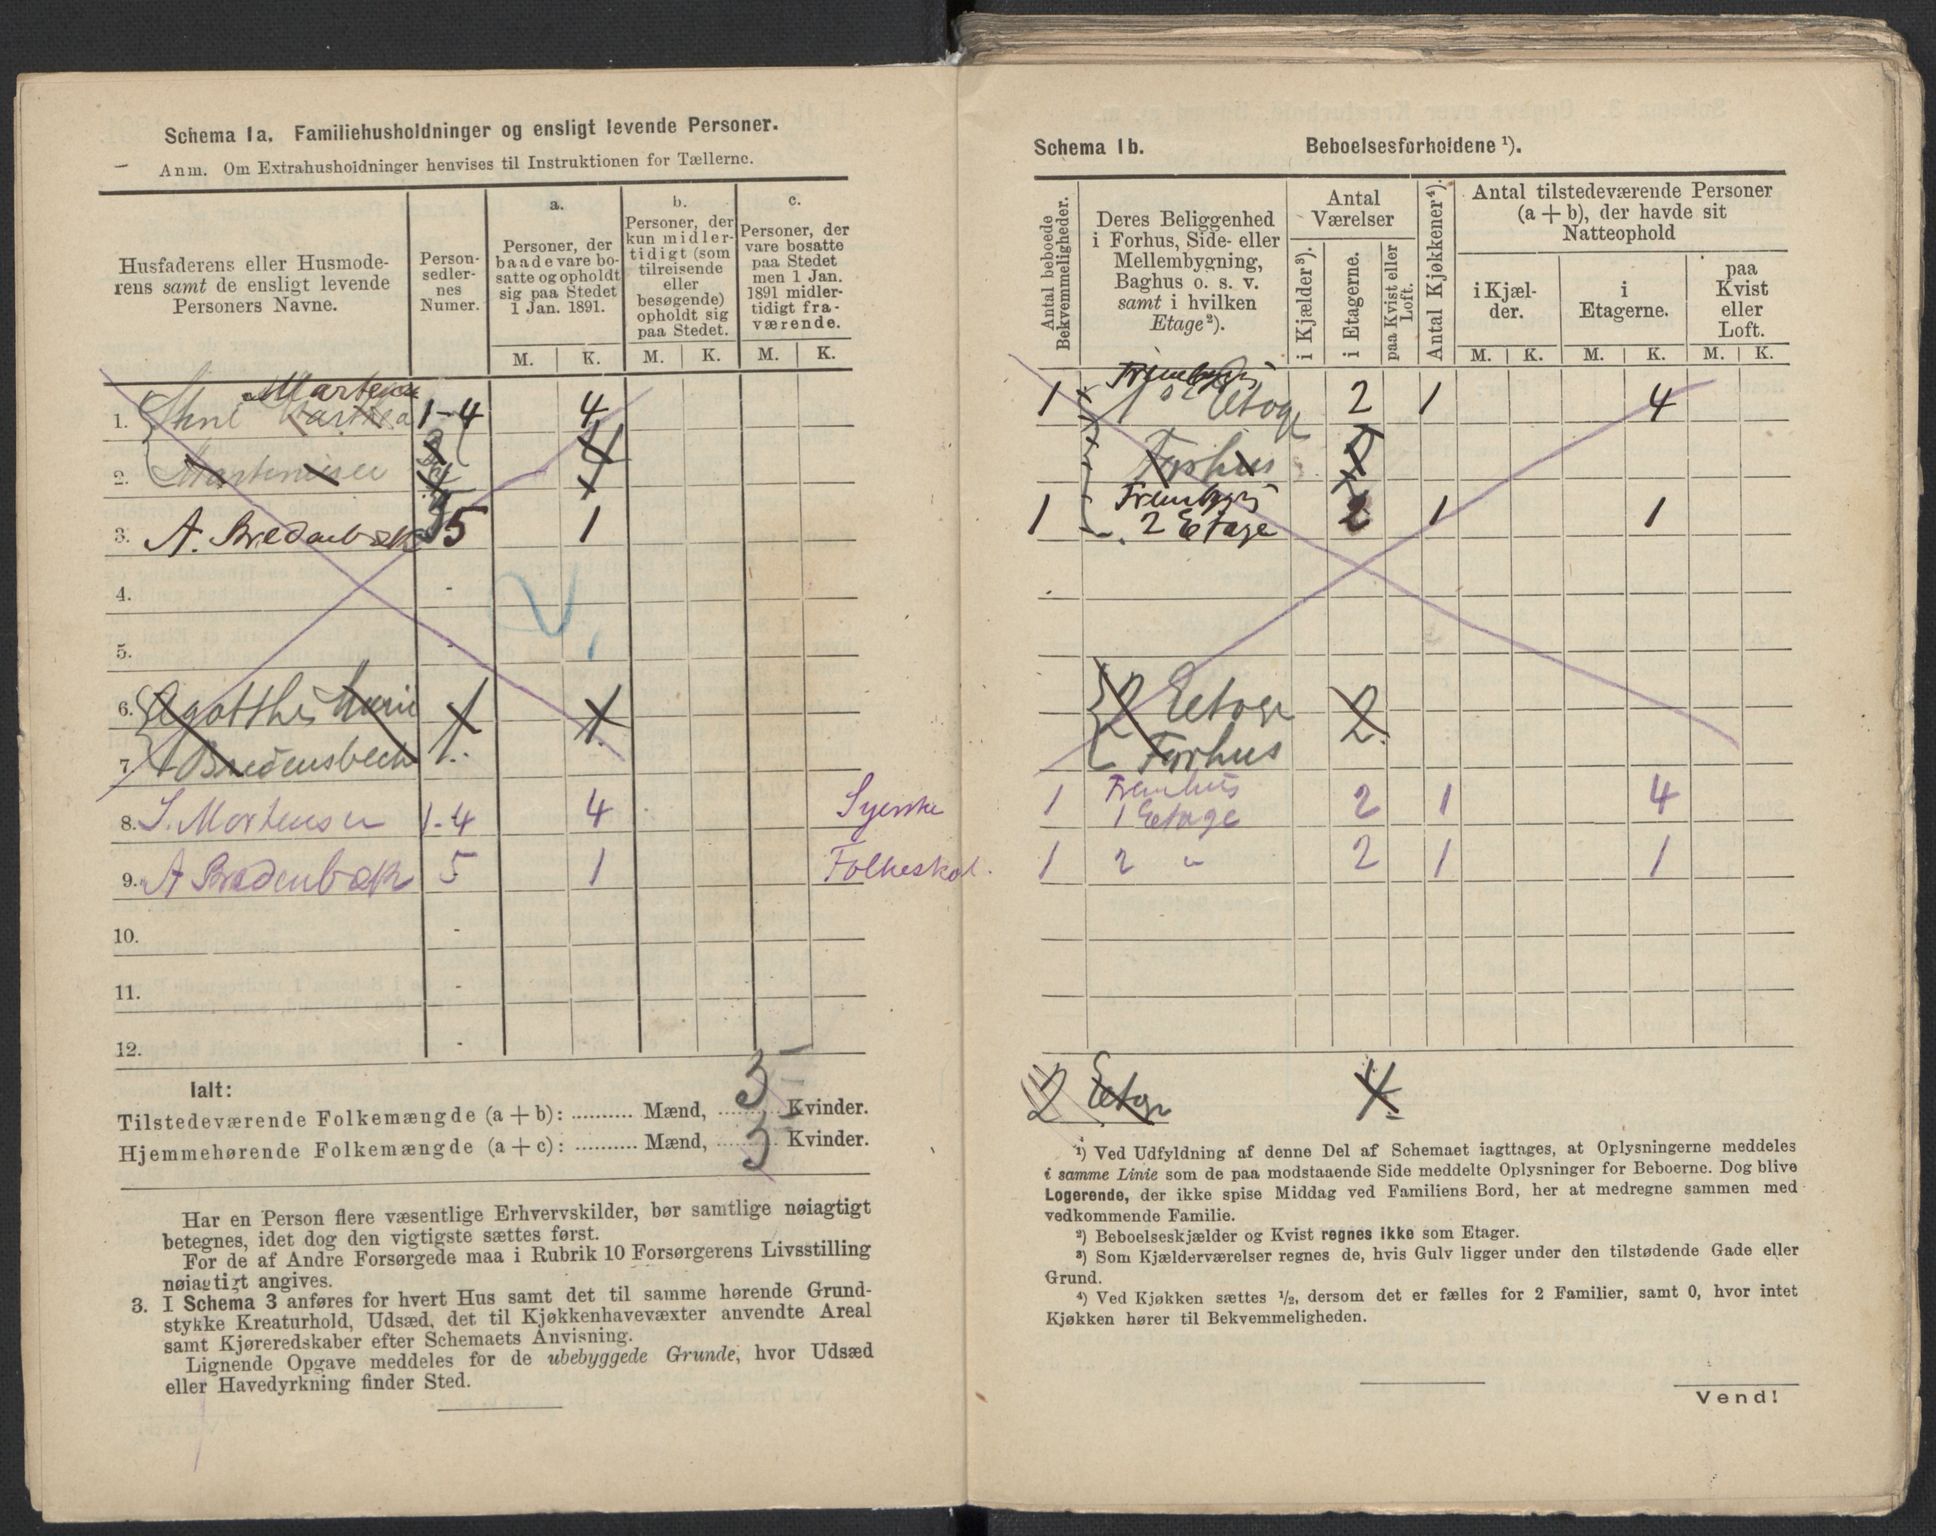 Schema 1a. Familiehusholdninger og ensligt levende Personer.
Anm. Om Extrahusholdninger henvises til Instruktionen for Tællerne.
Husfaderens eller Husmode-
rens samt de ensligt levende
Personers Navne.
Person-
sedler-
nes
Numer.
a.
Personer, der
baade vare bo-
satte og opholdt
sig paa Stedet
1 Jan. 1891.
b.
Personer, der
kun midler-
tidigt (som
tilreisende
eller
besøgende)
opholdt sig
paa Stedet.
c.
Personer, der
vare bosatte
paa Stedet
men 1 Jan.
1891 midler-
tidigt fra-
værende.
M. K. M. K. M. K.
Martens
1. 1-4 4
2. Martensen
3. A. Bredenbæk 5 1
4.
5.
6. Agatthe Marie 1 1
7. Bredensbech
8. S. Mortensen 1-4 4 Syerske
9. A Bredenbæk 5 1 Folkeskol.
10.
11.
12.
Ialt:
Tilstedeværende Folkemængde (a + b): .......... Mænd, 5 Kvinder.
Hjemmehørende Folkemængde (a + c): .......... Mænd, 5 Kvinder.
Har en Person flere væsentlige Erhvervskilder, bør samtlige nøiagtigt
betegnes, idet dog den vigtigste sættes først.
For de af Andre Forsørgede maa i Rubrik 10 Forsørgerens Livsstilling
nøiagtigt angives.
3. I Schema 3 anføres for hvert Hus samt det til samme hørende Grund-
stykke Kreaturhold, Udsæd, det til Kjøkkenhavevæxter anvendte Areal
samt Kjøreredskaber efter Schemaets Anvisning.
Lignende Opgave meddeles for de ubebyggede Grunde, hvor Udsæd
eller Havedyrkning finder Sted.
Schema 1b. Beboelsesforholdene ¹).
Antal beboede
Bekvemmeligheder.
Deres Beliggenhed
i Forhus, Side- eller
Mellembygning,
Baghus o. s. v.
samt i hvilken
Etage ²).
Antal
Værelser
i Kjælder ³).
i Etagerne.
paa Kvist eller
Loft.
Antal Kjøkkener ⁴).
Antal tilstedeværende Personer
(a + b), der havde sit
Natteophold
i Kjæl-
der.
i
Etagerne.
paa
Kvist
eller
Loft.
M. K. M. K. M. K.
1 1 Etage 2 1 4
Forhus
1 2 Etage 2 1 1
2 Etage 2
Forhus
1 Fremhus
1 Etage 2 1 4
1 2 " 2 1 1
2 Etage 4
¹) Ved Udfyldning af denne Del af Schemaet iagttages, at Oplysningerne meddeles
i samme Linie som de paa modstaaende Side meddelte Oplysninger for Beboerne. Dog blive
Logerende, der ikke spise Middag ved Familiens Bord, her at medregne sammen med
vedkommende Familie.
²) Beboelseskjælder og Kvist regnes ikke som Etager.
³) Som Kjælderværelser regnes de, hvis Gulv ligger under den tilstødende Gade eller
Grund.
⁴) Ved Kjøkken sættes ½, dersom det er fælles for 2 Familier, samt 0, hvor intet
Kjøkken hører til Bekvemmeligheden.
Vend!